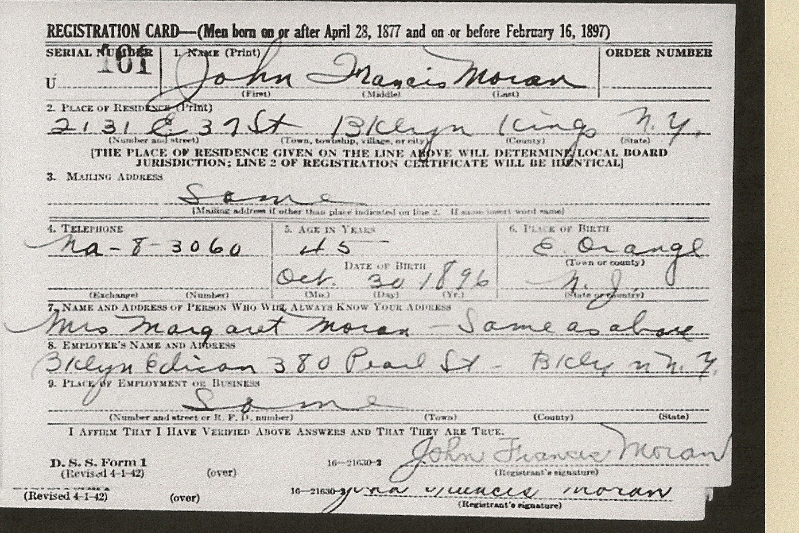 REGISTRATION CARD—(Men born on or after April 28, 1877 and on or before February 16, 1897)
SERIAL NUMBER 1. NAME (Print) ORDER NUMBER
U 101 John Francis Moran
(First) (Middle) (Last)
2. PLACE OF RESIDENCE (Print)
2131 E 37 St Bklyn Kings N.Y.
(Number and street) (Town, township, village, or city) (County) (State)
[THE PLACE OF RESIDENCE GIVEN ON THE LINE ABOVE WILL DETERMINE LOCAL BOARD
JURISDICTION; LINE 2 OF REGISTRATION CERTIFICATE WILL BE IDENTICAL]
3. MAILING ADDRESS
Same
[Mailing address if other than place indicated on line 2. If same insert word same]
4. TELEPHONE 5. AGE IN YEARS 6. PLACE OF BIRTH
Na-8-3060 45 E. Orange
DATE OF BIRTH (Town or county)
Oct. 30 1896 N.J.
(Exchange) (Number) (Mo.) (Day) (Yr.) (State or country)
7. NAME AND ADDRESS OF PERSON WHO WILL ALWAYS KNOW YOUR ADDRESS
Mrs Margaret Moran - Same as above
8. EMPLOYER'S NAME AND ADDRESS
Bklyn Edison 380 Pearl St - Bklyn N.Y.
9. PLACE OF EMPLOYMENT OR BUSINESS
Same
(Number and street or R. F. D. number) (Town) (County) (State)
I AFFIRM THAT I HAVE VERIFIED ABOVE ANSWERS AND THAT THEY ARE TRUE.
John Francis Moran
D. S. S. Form 1 16—21630-2
(Revised 4-1-42) (over) (Registrant's signature)
16—21630-2 John Francis Moran
(Revised 4-1-42) (over)
(Registrant's signature)